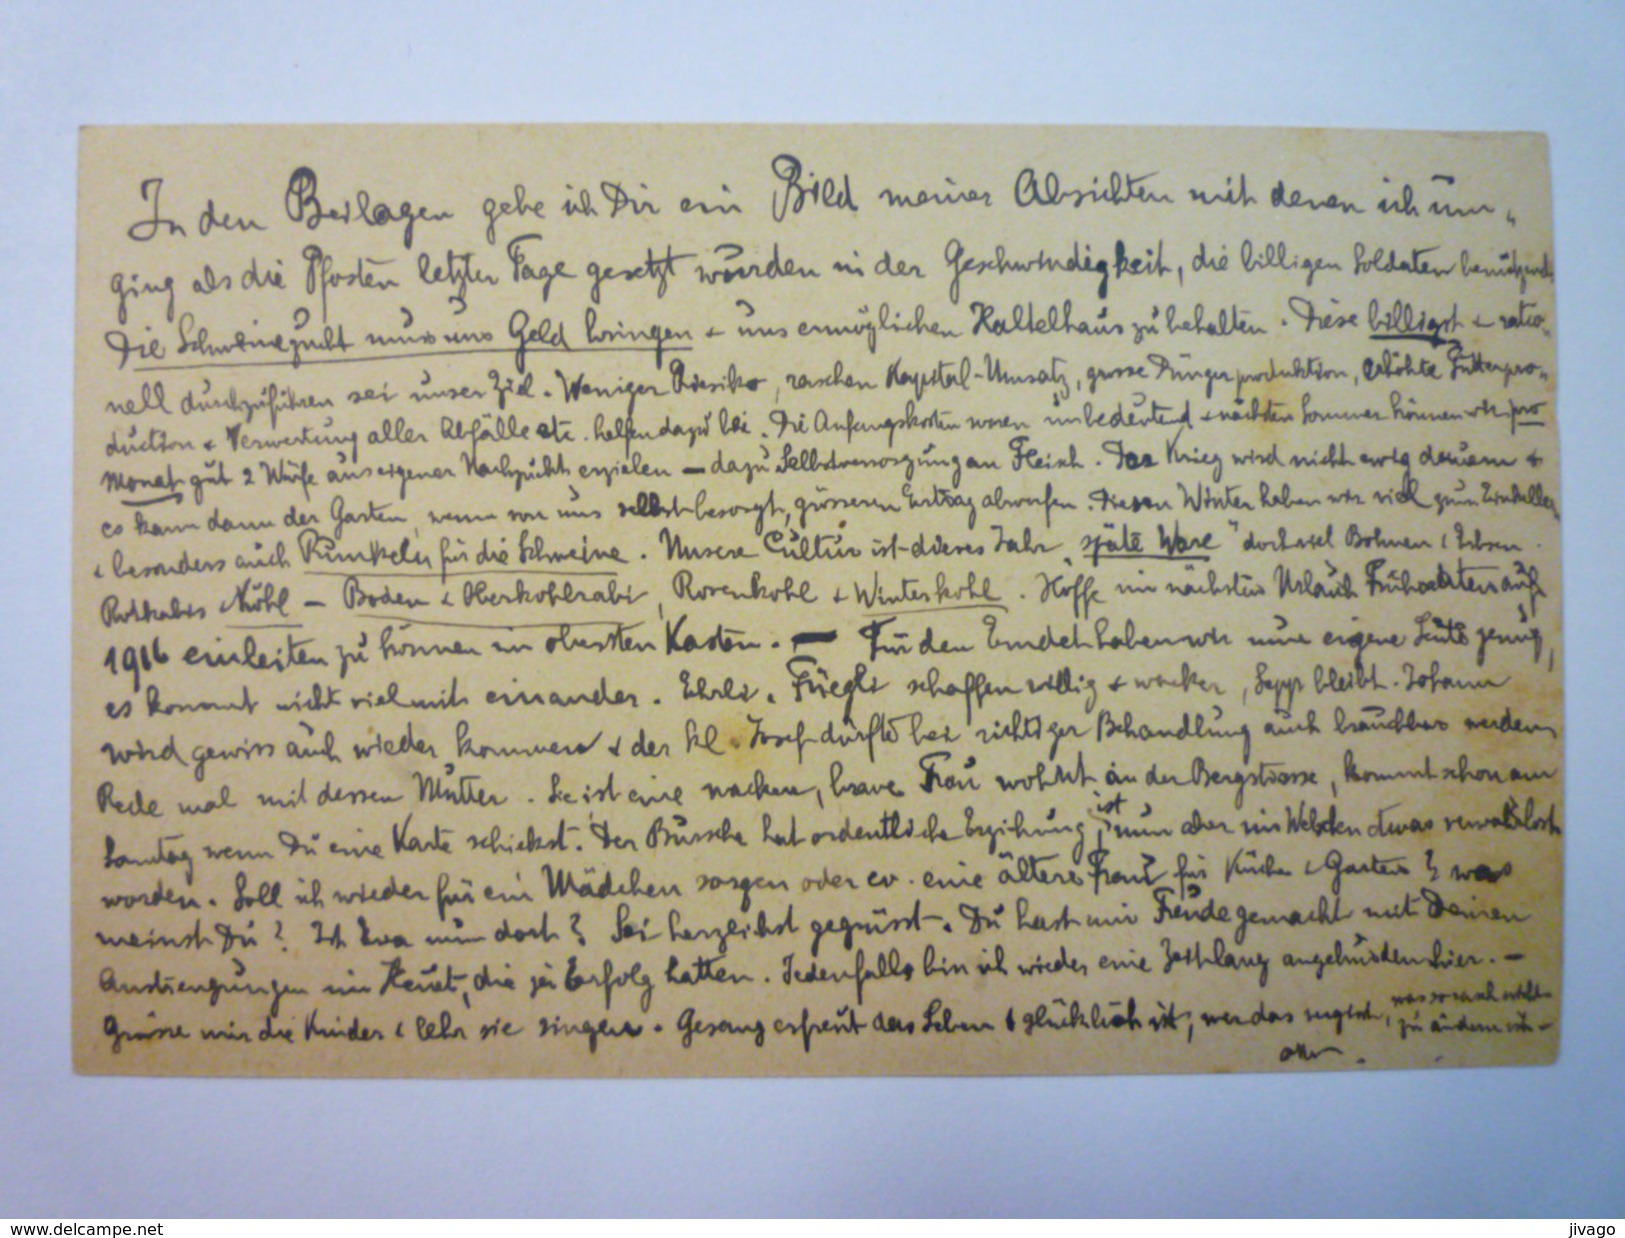 In den Beilagen gebe ich Dir ein Bild meiner Absichten mit denen ich um„
ging als die Pfosten letzter Tage gesetzt wurden in der Geschwindigkeit, die billigen Soldaten benützend.
Die Schweinezucht muss uns Geld bringen & uns ermöglichen Haltelhaus zu behalten. Diese billigst & ratio„
nell durchzuführen sei unser Ziel. Weniger Risiko, raschen Kapital-Umsatz, grosse Düngerproduktion, erhöhte Futterpro„
duction & Verwertung aller Abfälle etc. helfen dazu bei. Die Anfangskosten waren unbedeutend & nächsten Sommer können wir pro
Monat gut 2 Würfe aus eigener Nachzucht erzielen — dazu Selbstversorgung an Fleisch. Der Krieg wird nicht ewig dauern &
es kann dann der Garten, wenn von uns selbst besorgt, grösseren Ertrag abwerfen. Diesen Winter haben wir viel zum Einkeller„
& besonders auch Runkeln für die Schweine. Unsere Cultur ist dieses Jahr „späte Ware" doch viel Bohnen & Erbsen.
Rotkabis & Köhl — Boden & Oberkohlrabi, Rosenkohl & Winterkohl. Hoffe im nächsten Urlaub auf
1916 einleiten zu können im obersten Kasten. — Für den Emdet haben wir nun eigene Leute genug,
es kommt nicht viel mit einander. Ehrli & Füegli schaffen willig & wacker, Sepp bleibt. Johann
wird gewiss auch wieder kommen & der kl. Josef dürfte bei richtiger Behandlung auch brauchbar werden,
Rede mal mit dessen Mutter. Sie ist eine wackere, brave Frau wohnt an der Bergstrasse, kommt schon am
Samstag wenn Du eine Karte schickst. Der Bursche hat ordentliche Erziehung, ist nun aber im etwas verwahrlost
worden. Soll ich wieder für ein Mädchen sorgen oder ev. eine ältere Frau für Küche & Garten? was
meinst Du? Ist Eva nun dort? Sei herzlichst gegrüsst. Du hast mir Freude gemacht mit Deinen
Anstrengungen im Heuet, die ja Erfolg hatten. Jedenfalls bin ich wieder eine Zeitlang angebunden hier. —
Grüsse mir die Kinder & lehr sie singen. Gesang erfreut das Leben & glücklich ist, wer das vergisst, was so rasch nicht
zu ändern ist —
delcampe.net
jivago